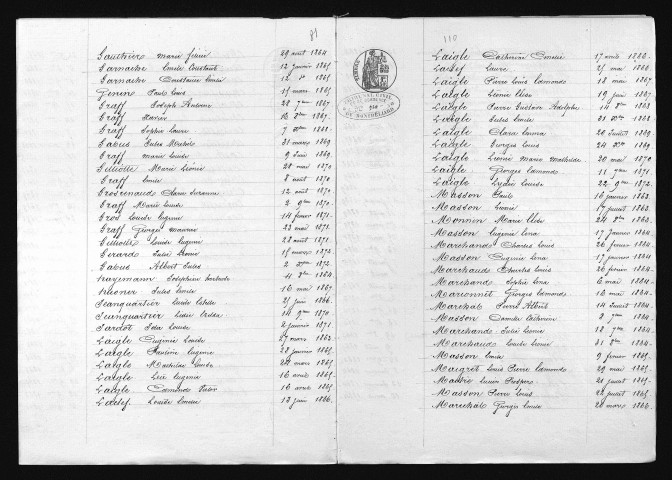 81
Gauthier Marie Julie 29 août 1864
Garnache Emile Constant 12 janvier 1865.
Garnache Constance Emilie 12 do 1865.
Genin Paul Louis 15 mars 1867.
Graff Joseph Antoine 28 7bre 1867
Graff Xavier 16 8bre 1867.
Graff Sophie Laure 7 Xbre 1868.
Gabus Jules 31 mars 1869
Graff Marie Louise 9 juin 1869.
Gilliotte Marie Léonie 28 mai 1870
Graff Emile 8 août 1870.
Grosrenaud Claire Suzanne 12 août 1870.
Graff Marie Louise 2 9bre 1870.
Gros Louise Eugénie 14 février 1871.
Graff Georges 23 mai 1871.
Gilliotte Louise Eugénie 28 août 1871.
Gerard Julie Léonie 15 mars 1872.
Gabus Albert Jules 2 Xbre 1872.
Joséphine 11 8bre 1864.
Jules Emile 16 mai 1867
Jeanquartier 21 juin 1866.
Jeanquartier 14 9bre 1870.
Jardot Ida Louise 4 janvier 1871.
Laigle Eugénie Louise 27 mars 1863.
Laigle Pauline Eugénie 28 janvier 1865.
Laigle Mathilde Louise 28 mars 1865.
Laigle Lucie Eugénie 16 août 1865.
Laigle Edmond 16 août 1865.
Laissef Louise Emilie 13 juin 1866.
110
Laigle Catherine Emélie 17 août 1866.
Laissef Laure 21 mai 1866.
Laigle Pierre Louis Edmond 18 mai 1867
Laigle Léonie Elise 19 juin 1867.
Laigle Pierre Gustave Adolphe 14 8bre 1868
Laigle Jules Emile 21 Xbre 1868.
Laigle Clara Emma 20 juillet 1869.
Laigle Georges Louis 24 Xbre 1869.
Laigle Léonie Marie Mathilde 20 mai 1870
Laigle Georges Edmond 11 7bre 1871.
Laigle Lydie Louise 22 9bre 1872.
Masson Paul 16 janvier 1863.
Masson 17 juillet 1863.
Monnin Marie Elise 24 8bre 1863.
Masson Eugénie Léna 17 janvier 1864
Marchand Charles Louis 26 février 1864.
Masson Eugénie Léna 17 janvier 1864
Marchand Charles Louis 26 février 1864.
Marchand Sophie Léna 6 mai 1864.
Marionnet Georges Edmond 16 mai 1864.
Marchal Pierre Albert 14 juillet 1864.
Masson Camille Catherine 8 7bre 1864
Marchand Julie Léonie 18 7bre 1864.
Marchand Louise Léonie 31 8bre 1864.
Masson Emile 9 février 1865.
Maigret Louis Pierre Edmond 29 mai 1865.
Maitre Lucien Prospère 21 juillet 1865.
Masson Pierre Louis 22 juillet 1865.
Marechal Georges Emile 26 mars 1866.